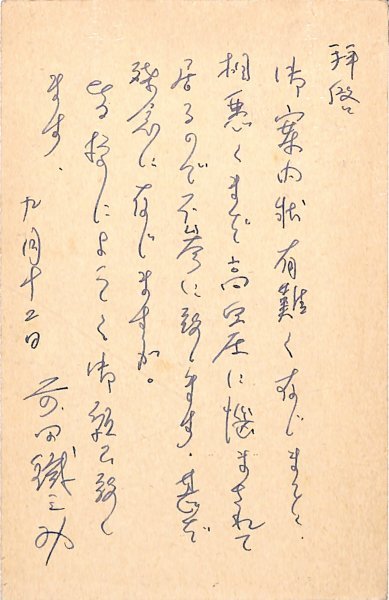 拝啓
御案内状有難く存じました、
相悪くまだ高血圧に悩まされて
居るので不参に致します。甚だ
残念に存じますが。
皆様によろしく御願い致し
ます、
九月十二日 前田鐵之助